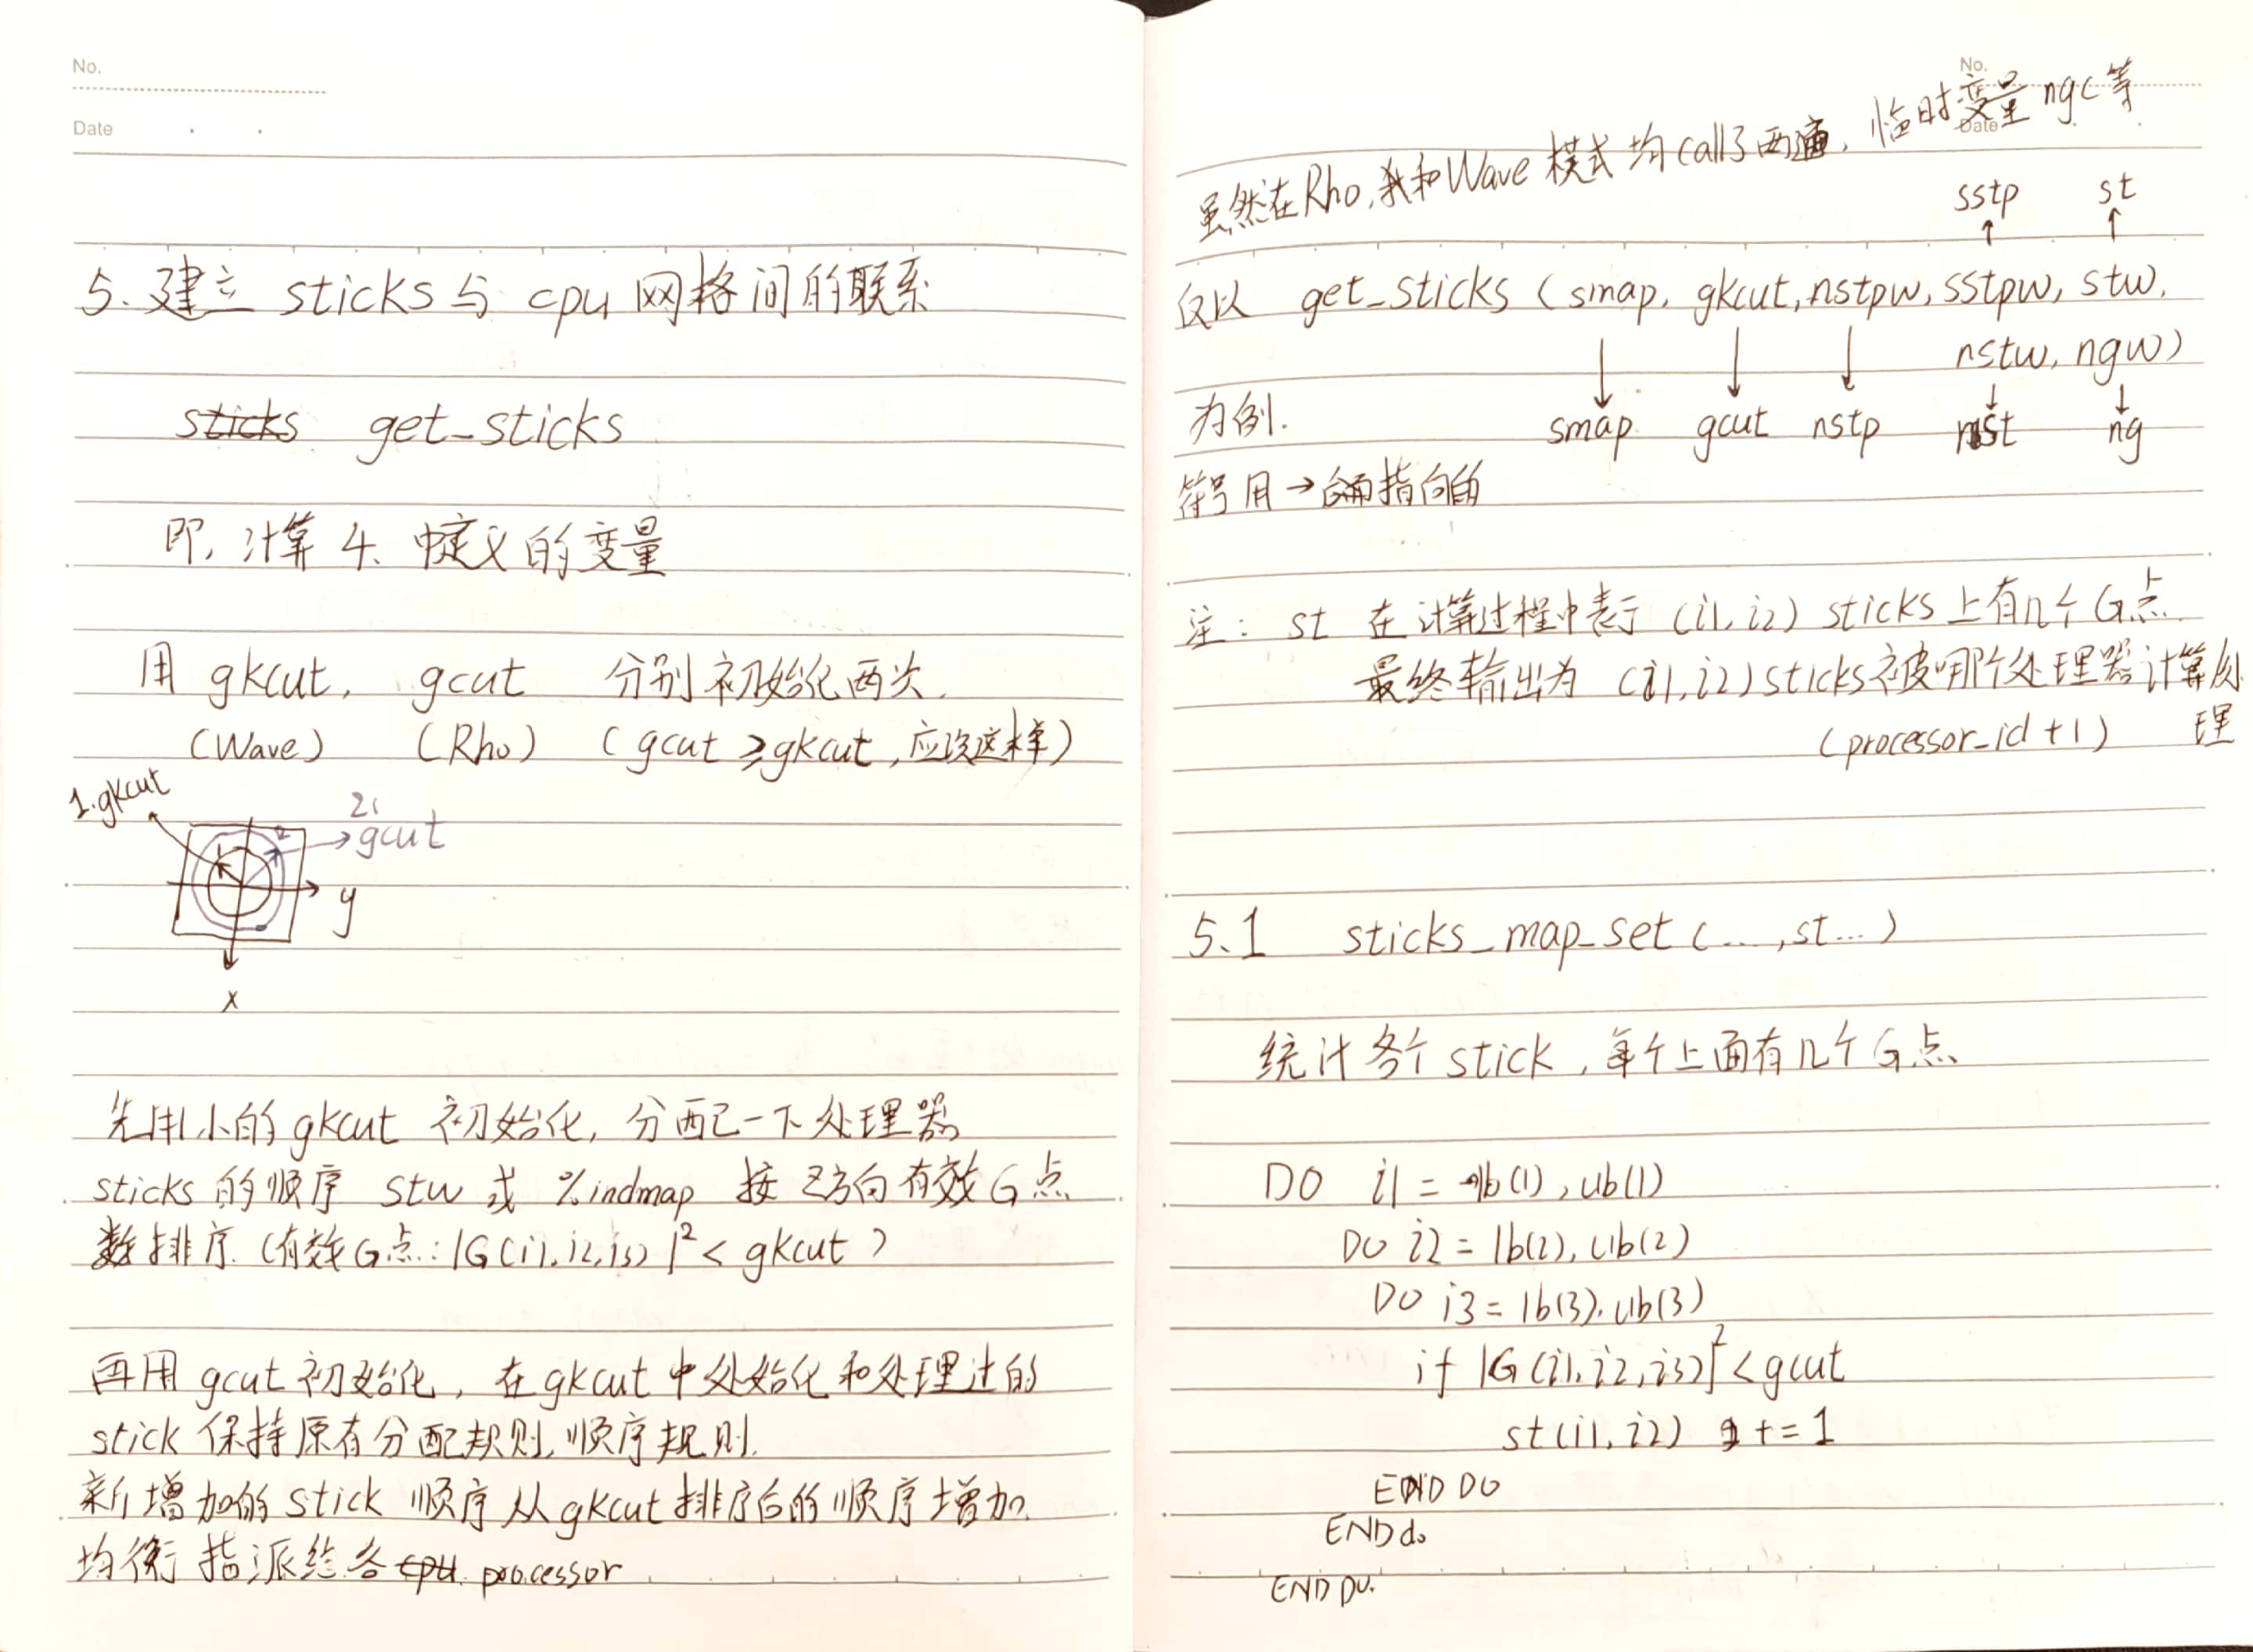 No.
Date
5. 建立 sticks 与 cpu 网格间的联系
sticks get_sticks
即, 计算 4. 中定义的变量
用 gkcut, gcut 分别初始化两次.
(Wave) (Rho) (gcut ≥ gkcut, 应该这样)
1. gkcut
2.
gcut
1
2
y
x
先用小的 gkcut 初始化, 分配一下处理器
sticks 的顺序 stw 或 %indmap 按 z方向有效G点
数排序. (有效G点: |G(i1,i2,i3)|² < gkcut)
再用 gcut 初始化, 在 gkcut 中处始化和处理过的
stick 保持原有分配规则, 顺序规则.
新增加的 stick 顺序从 gkcut 排序后的顺序增加.
均衡指派给各 cpu processor
No.
Date
虽然在 Rho, 和 Wave 模式均 call 了两遍, 临时变量 ngc 等
sstp st
↑ ↑
仅以 get_sticks (smap, gkcut, nstpw, sstpw, stw,
nstw, ngw)
↓ ↓ ↓ ↓ ↓
为例. smap gcut nstp nst ng
符号用 → 指向的
注: st 在计算过程中表示 (i1, i2) sticks 上有几个 G点
最终输出为 (i1, i2) sticks 被哪个处理器计算处
理
(processor_id + 1)
5.1 sticks_map_set (..., st...)
统计各个 stick, 每个上面有几个 G点
DO i1 = lb(1), ub(1)
DO i2 = lb(2), ub(2)
DO i3 = lb(3), ub(3)
if |G(i1,i2,i3)|² < gcut
st(i1, i2) += 1
END DO
END do
END DO.